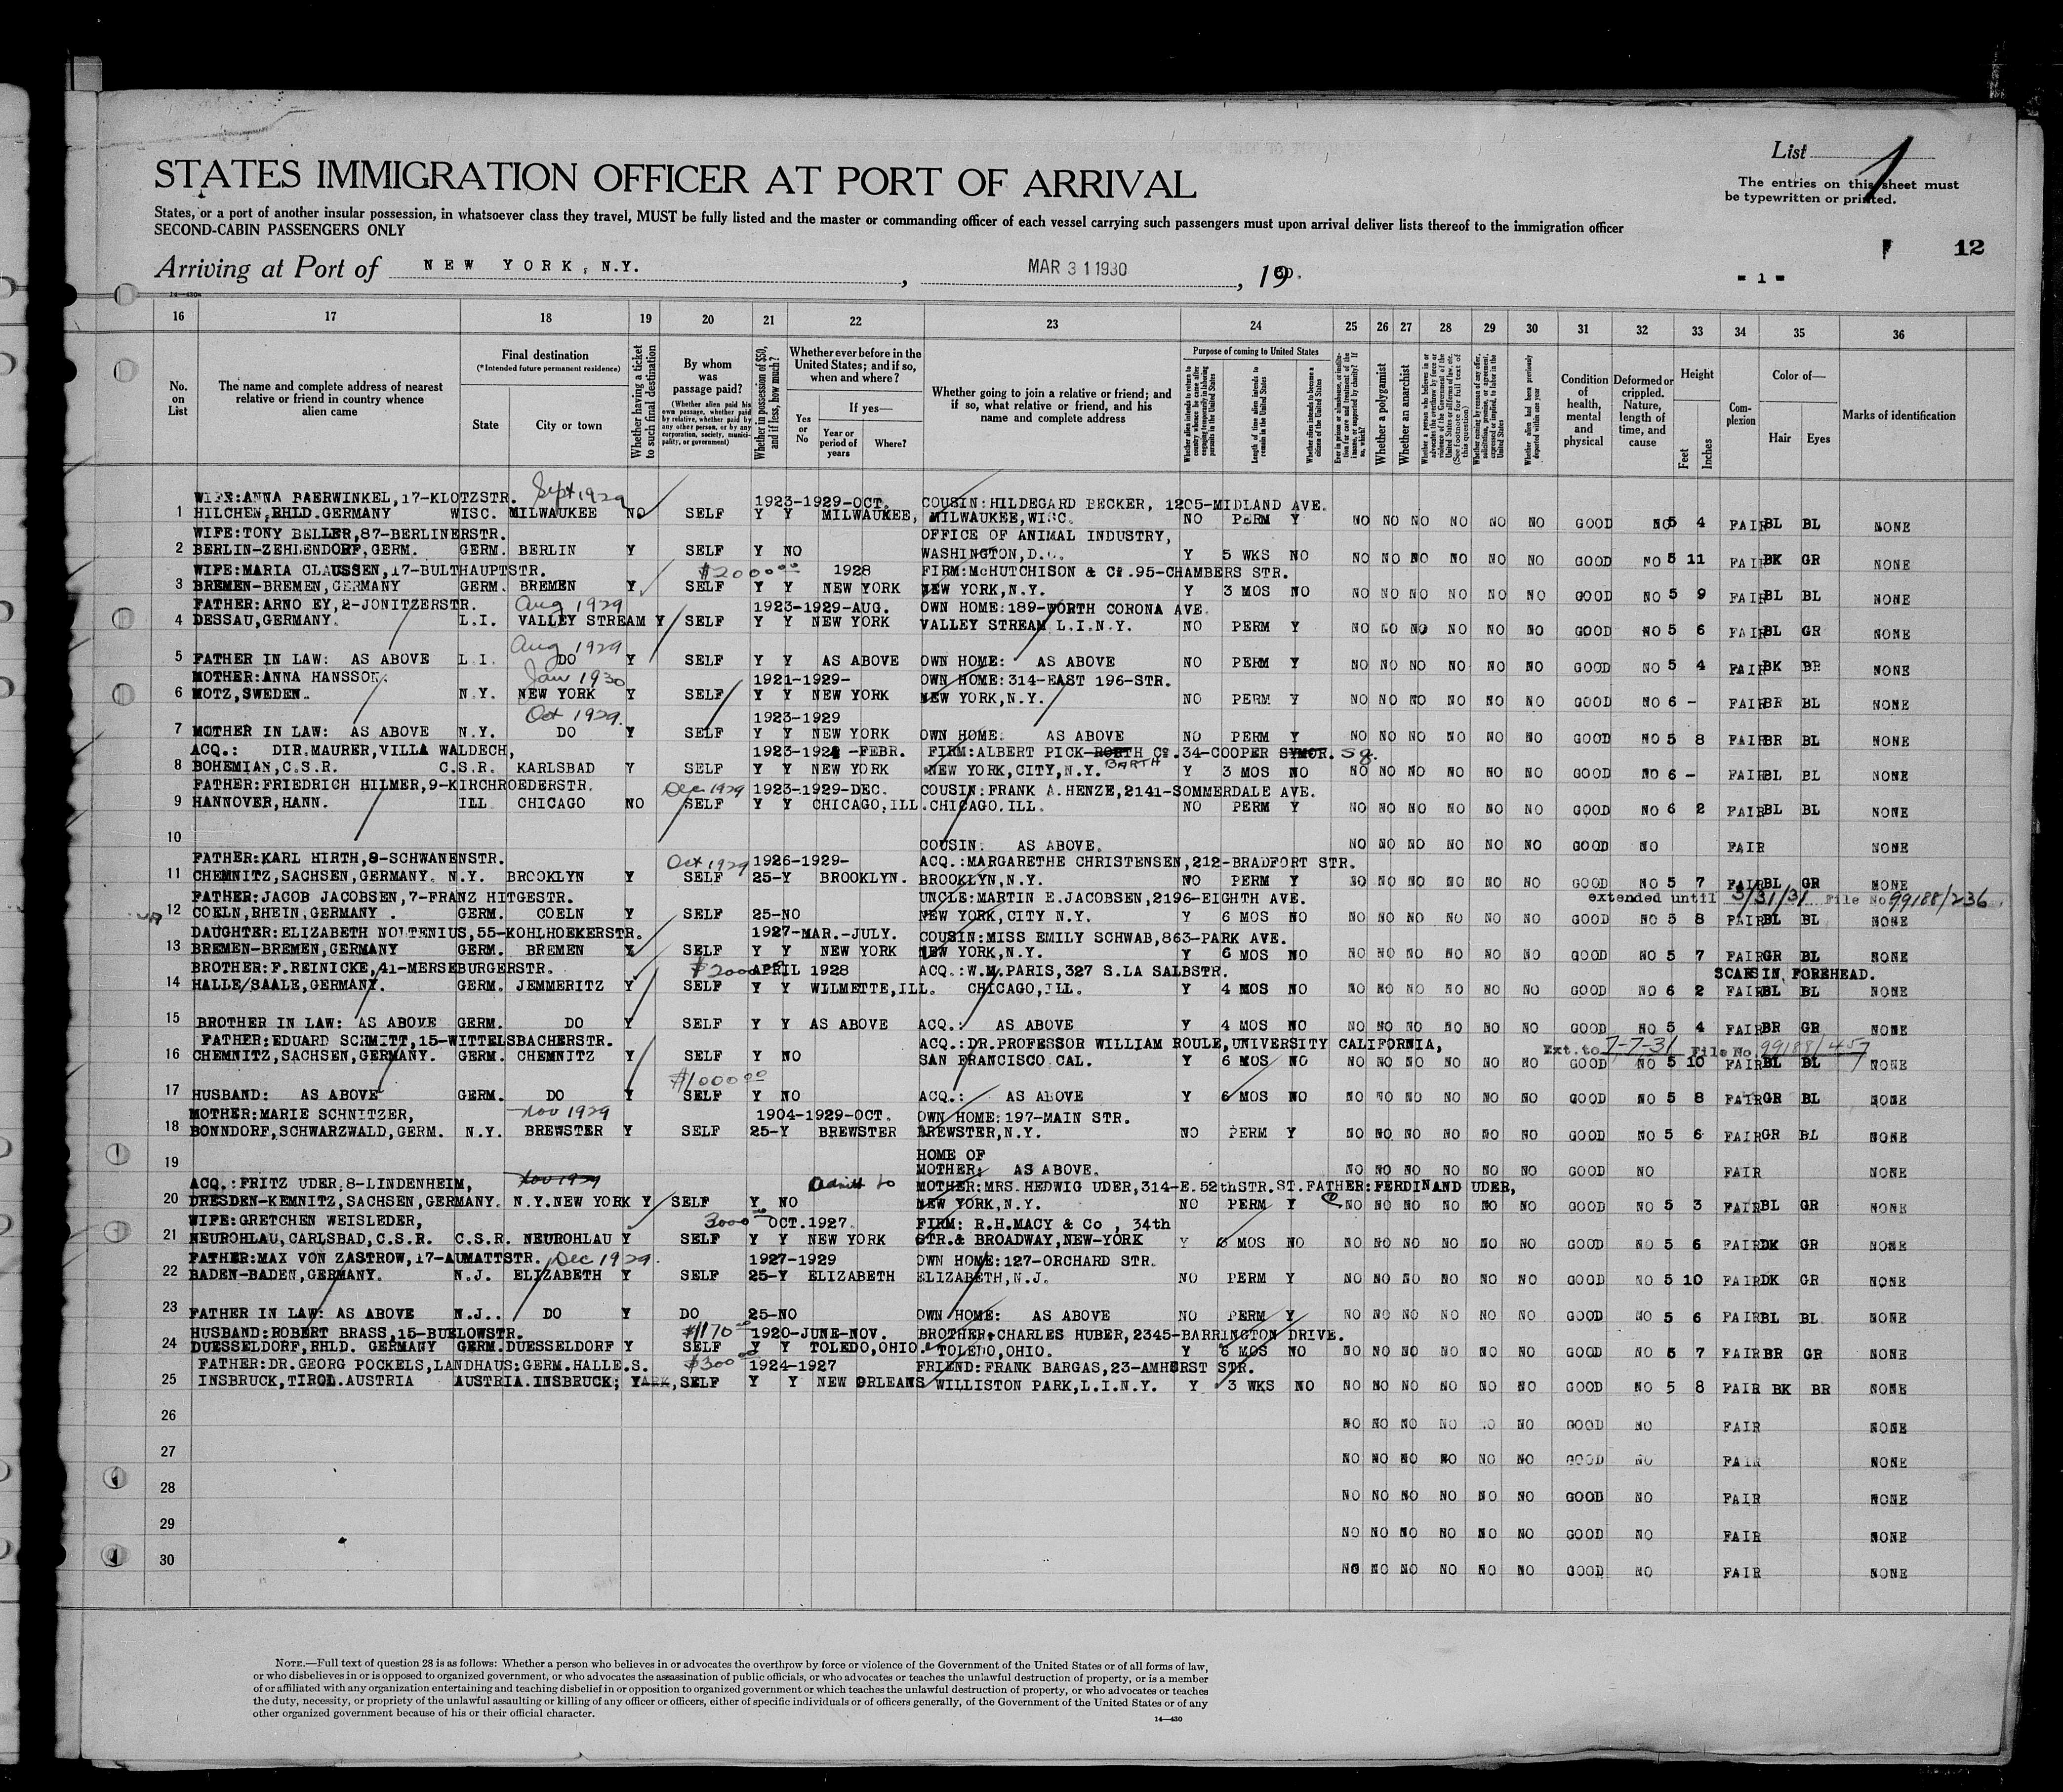 List 1
STATES IMMIGRATION OFFICER AT PORT OF ARRIVAL
The entries on this sheet must
be typewritten or printed.
States, or a port of another insular possession, in whatsoever class they travel, MUST be fully listed and the master or commanding officer of each vessel carrying such passengers must upon arrival deliver lists thereof to the immigration officer
SECOND-CABIN PASSENGERS ONLY
12
Arriving at Port of NEW YORK, N.Y. , MAR 31 1930 , 1930.
- 1 -
14-430a
16 17 18 19 20 21 22 23 24 25 26 27 28 29 30 31 32 33 34 35 36
No. on List
The name and complete address of nearest relative or friend in country whence alien came
Final destination
(*Intended future permanent residence)
State City or town
Whether having a ticket to such final destination
By whom was passage paid?
(Whether alien paid his own passage, whether paid by relative, whether paid by any other person, or by any corporation, society, municipality, or government)
Whether in possession of $50, and if less, how much?
Whether ever before in the United States; and if so, when and where?
Yes or No
If yes—
Year or period of years Where?
Whether going to join a relative or friend; and if so, what relative or friend, and his name and complete address
Purpose of coming to United States
Whether alien intends to return to country whence he came after engaging temporarily in laboring pursuits in the United States
Length of time alien intends to remain in the United States
Whether alien intends to become a citizen of the United States
Ever in prison or almshouse, or institution for care and treatment of the insane, or supported by charity? If so, which?
Whether a polygamist
Whether an anarchist
Whether a person who believes in or advocates the overthrow by force or violence of the Government of the United States or all forms of law, etc. (See footnote for full text of this question)
Whether coming by reason of any offer, solicitation, promise, or agreement, expressed or implied, to labor in the United States
Whether alien had been previously deported within one year
Condition of health, mental and physical
Deformed or crippled. Nature, length of time, and cause
Height
Feet Inches
Complexion
Color of—
Hair Eyes
Marks of identification
WIFE:ANNA BAERWINKEL,17-KLOTZSTR. Sept 1929 1923-1929-OCT. COUSIN:HILDEGARD BECKER, 1205-MIDLAND AVE.
1 HILCHEN,RHLD.GERMANY WISC. MILWAUKEE NO SELF Y Y MILWAUKEE, MILWAUKEE,WISC. NO PERM Y NO NO NO NO NO NO GOOD NO 5 4 FAIR BL BL NONE
WIFE:TONY BELLER,87-BERLINERSTR. OFFICE OF ANIMAL INDUSTRY,
2 BERLIN-ZEHLENDORF,GERM. GERM. BERLIN Y SELF Y NO WASHINGTON,D.C. Y 5 WKS NO NO NO NO NO NO NO GOOD NO 5 11 FAIR BK GR NONE
WIFE:MARIA CLAUSSEN,17-BULTHAUPTSTR. $2000 00 1928 FIRM:McHUTCHISON & Co.95-CHAMBERS STR.
3 BREMEN-BREMEN,GERMANY GERM. BREMEN Y SELF Y Y NEW YORK NEW YORK,N.Y. Y 3 MOS NO NO NO NO NO NO NO GOOD NO 5 9 FAIR BL BL NONE
FATHER:ARNO EY,2-JONITZERSTR. Aug 1929 1923-1929-AUG. OWN HOME:189-NORTH CORONA AVE.
4 DESSAU,GERMANY. L.I. VALLEY STREAM Y SELF Y Y NEW YORK VALLEY STREAM L.I.N.Y. NO PERM Y NO NO NO NO NO NO GOOD NO 5 6 FAIR BL GR NONE
Aug 1929
5 FATHER IN LAW: AS ABOVE L.I. DO Y SELF Y Y AS ABOVE OWN HOME: AS ABOVE NO PERM Y NO NO NO NO NO NO GOOD NO 5 4 FAIR BK BR NONE
MOTHER:ANNA HANSSON. Jan 1930 1921-1929- OWN HOME:314-EAST 196-STR.
6 MOTZ,SWEDEN. N.Y. NEW YORK Y SELF Y Y NEW YORK NEW YORK,N.Y. NO PERM Y NO NO NO NO NO NO GOOD NO 6 - FAIR BR BL NONE
Oct 1929. 1923-1929
7 MOTHER IN LAW: AS ABOVE N.Y. DO Y SELF Y Y NEW YORK OWN HOME. AS ABOVE NO PERM Y NO NO NO NO NO NO GOOD NO 5 8 FAIR BR BL NONE
ACQ.: DIR.MAURER,VILLA WALDECH, -FEBR. FIRM:ALBERT PICK-BARTH Co.34-COOPER Sq.
8 BOHEMIAN,C.S.R. C.S.R. KARLSBAD Y SELF Y Y NEW YORK NEW YORK,CITY,N.Y. Y 3 MOS NO NO NO NO NO NO NO GOOD NO 6 - FAIR BL BL NONE
FATHER:FRIEDRICH HILMER,9-KIRCHROEDERSTR. Dec 1929 1923-1929-DEC. COUSIN:FRANK A.HENZE,2141-SOMMERDALE AVE.
9 HANNOVER,HANN. ILL CHICAGO NO SELF Y Y CHICAGO,ILL. CHICAGO.ILL. NO PERM Y NO NO NO NO NO NO GOOD NO 6 2 FAIR BL BL NONE
10 COUSIN. AS ABOVE. NO NO NO NO NO NO GOOD NO FAIR NONE
FATHER:KARL HIRTH,8-SCHWANENSTR. Oct 1929 1926-1929- ACQ.:MARGARETHE CHRISTENSEN,212-BRADFORT STR.
11 CHEMNITZ,SACHSEN,GERMANY. N.Y. BROOKLYN Y SELF 25-Y BROOKLYN. BROOKLYN,N.Y. NO PERM Y NO NO NO NO NO NO GOOD NO 5 7 FAIR BL GR NONE
FATHER:JACOB JACOBSEN,7-FRANZ HITGESTR. UNCLE:MARTIN E.JACOBSEN,2196-EIGHTH AVE. extended until 3/31/31 File No 99188/236
12 COELN,RHEIN,GERMANY . GERM. COELN Y SELF 25-NO NEW YORK,CITY N.Y. Y 6 MOS NO NO NO NO NO NO NO GOOD NO 5 8 FAIR BL BL NONE
DAUGHTER:ELIZABETH NOLTENIUS,55-KOHLHOEKERSTR. 1927-MAR.-JULY. COUSIN:MISS EMILY SCHWAB,863-PARK AVE.
13 BREMEN-BREMEN,GERMANY GERM. BREMEN Y SELF Y Y NEW YORK NEW YORK,N.Y. Y 6 MOS NO NO NO NO NO NO NO GOOD NO 5 7 FAIR GR BL NONE
BROTHER:F.REINICKE,41-MERSEBURGERSTR. $2000 APRIL 1928 ACQ.:W.M.PARIS,327 S.LA SALBSTR. SCARS IN FOREHEAD.
14 HALLE/SAALE,GERMANY. GERM. JEMMERITZ Y SELF Y Y WILMETTE,ILL. CHICAGO,ILL. Y 4 MOS NO NO NO NO NO NO NO GOOD NO 6 2 FAIR BL BL NONE
15 BROTHER IN LAW: AS ABOVE GERM. DO Y SELF Y Y AS ABOVE ACQ.: AS ABOVE Y 4 MOS NO NO NO NO NO NO NO GOOD NO 5 4 FAIR BR GR NONE
FATHER:EDUARD SCHMITT,15-WITTELSBACHERSTR. ACQ.:DR.PROFESSOR WILLIAM ROULE,UNIVERSITY CALIFORNIA, Ext.to 7-7-31 File No. 99188/457
16 CHEMNITZ,SACHSEN,GERMANY. GERM. CHEMNITZ Y SELF Y NO SAN FRANCISCO.CAL. Y 6 MOS NO NO NO NO NO NO NO GOOD NO 5 10 FAIR BL BL NONE
$1000 00
17 HUSBAND: AS ABOVE GERM. DO Y SELF Y NO ACQ.: AS ABOVE Y 6 MOS NO NO NO NO NO NO NO GOOD NO 5 8 FAIR GR BL NONE
MOTHER:MARIE SCHNITZER, Nov 1929 1904-1929-OCT. OWN HOME:197-MAIN STR.
18 BONNDORF,SCHWARZWALD,GERM. N.Y. BREWSTER Y SELF 25-Y BREWSTER BREWSTER,N.Y. NO PERM Y NO NO NO NO NO NO GOOD NO 5 6 FAIR GR BL NONE
HOME OF
19 MOTHER: AS ABOVE. NO NO NO NO NO NO GOOD NO FAIR NONE
ACQ.:FRITZ UDER.8-LINDENHEIM, Nov 1929 admit to MOTHER:MRS.HEDWIG UDER,314-E.52thSTR.ST.FATHER:FERDINAND UDER,
20 DRESDEN-KEMNITZ,SACHSEN,GERMANY. N.Y.NEW YORK Y SELF Y NO NEW YORK,N.Y. NO PERM Y NO NO NO NO NO NO GOOD NO 5 3 FAIR BL GR NONE
WIFE:GRETCHEN WEISLEDER, 3000 00 OCT.1927. FIRM: R.H.MACY & Co , 34th
21 NEUROHLAU,CARLSBAD,C.S.R. C.S.R. NEUROHLAU Y SELF Y Y NEW YORK STR.& BROADWAY,NEW-YORK Y 6 MOS NO NO NO NO NO NO NO GOOD NO 5 6 FAIR DK GR NONE
FATHER:MAX VON ZASTROW,17-AUMATTSTR. Dec 1929. 1927-1929 OWN HOME:127-ORCHARD STR.
22 BADEN-BADEN,GERMANY. N.J. ELIZABETH Y SELF 25-Y ELIZABETH ELIZABETH,N.J. NO PERM Y NO NO NO NO NO NO GOOD NO 5 10 FAIR DK GR NONE
23 FATHER IN LAW: AS ABOVE N.J.. DO Y DO 25-NO OWN HOME: AS ABOVE NO PERM Y NO NO NO NO NO NO GOOD NO 5 6 FAIR BL BL NONE
HUSBAND:ROBERT BRASS,15-BUELOWSTR. $1170 1920-JUNE-NOV. BROTHER:CHARLES HUBER,2345-BARRINGTON DRIVE.
24 DUESSELDORF,RHLD. GERMANY GERM.DUESSELDORF Y SELF Y Y TOLEDO,OHIO. TOLEDO,OHIO. Y 6 MOS NO NO NO NO NO NO NO GOOD NO 5 7 FAIR BR GR NONE
FATHER:DR.GEORG POCKELS,LANDHAUS:GERM.HALLE.S. $300 00 1924-1927 FRIEND:FRANK BARGAS,23-AMHERST STR.
25 INSBRUCK,TIROL.AUSTRIA AUSTRIA.INSBRUCK; SELF Y Y NEW ORLEANS WILLISTON PARK,L.I.N.Y. Y 3 WKS NO NO NO NO NO NO NO GOOD NO 5 8 FAIR BK BR NONE
26 NO NO NO NO NO NO GOOD NO FAIR NONE
27 NO NO NO NO NO NO GOOD NO FAIR NONE
28 NO NO NO NO NO NO GOOD NO FAIR NONE
29 NO NO NO NO NO NO GOOD NO FAIR NONE
30 NO NO NO NO NO NO GOOD NO FAIR NONE
NOTE.—Full text of question 28 is as follows: Whether a person who believes in or advocates the overthrow by force or violence of the Government of the United States or of all forms of law,
or who disbelieves in or is opposed to organized government, or who advocates the assassination of public officials, or who advocates or teaches the unlawful destruction of property, or is a member
of or affiliated with any organization entertaining and teaching disbelief in or opposition to organized government or which teaches the unlawful destruction of property, or who advocates or teaches
the duty, necessity, or propriety of the unlawful assaulting or killing of any officer or officers, either of specific individuals or of officers generally, of the Government of the United States or of any
other organized government because of his or their official character.
14-430